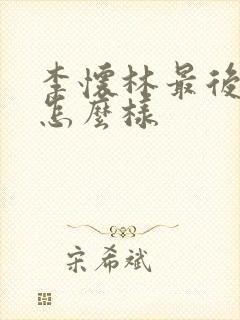 李懷林最後
怎麼樣
宋希斌